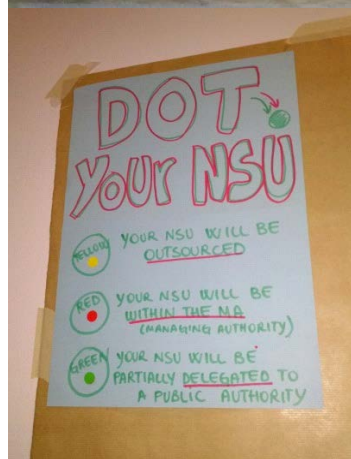 DOT
YOUR NSU
YELLOW
YOUR NSU WILL BE
OUTSOURCED
RED
YOUR NSU WILL BE
WITHIN THE MA
(MANAGING AUTHORITY)
GREEN
YOUR NSU WILL BE
PARTIALLY DELEGATED TO
A PUBLIC AUTHORITY